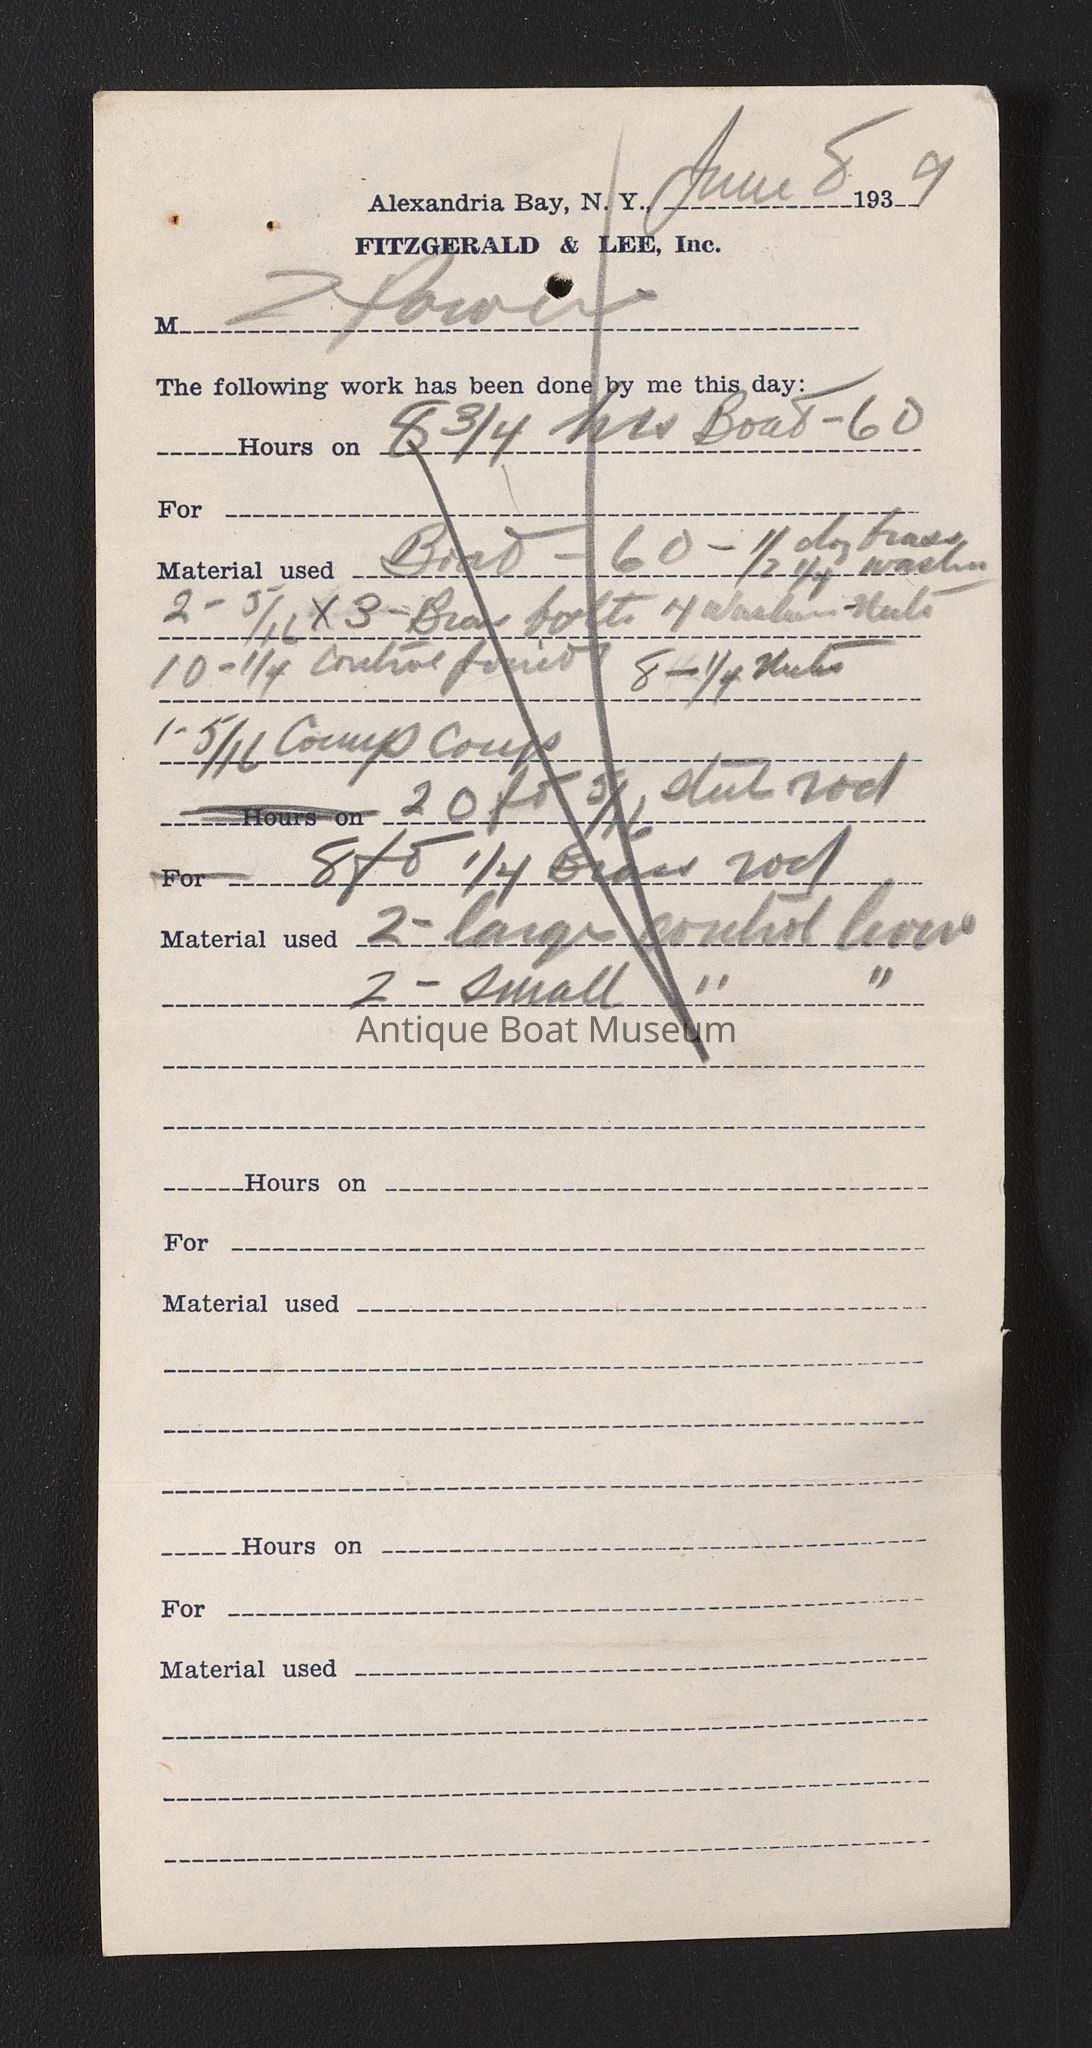 Alexandria Bay, N. Y. June 8 1939
FITZGERALD & LEE, Inc.
M
The following work has been done by me this day:
Hours on 8 3/4 hrs Boat - 60
For
Material used Boat - 60 - 1/2 doz brass
1/4 washer
2 - 5/16 X 3 - Brass bolts 4 washers - Nuts
10 - 1/4 Control joint 8 - 1/4 Nuts
1 - 5/16 Comp Coup
Hours on 20 ft 5/16 steel rod
For 8 ft 1/4 Brass rod
Material used 2 - large control
2 - small " "
Antique Boat Museum
Hours on
For
Material used
Hours on
For
Material used